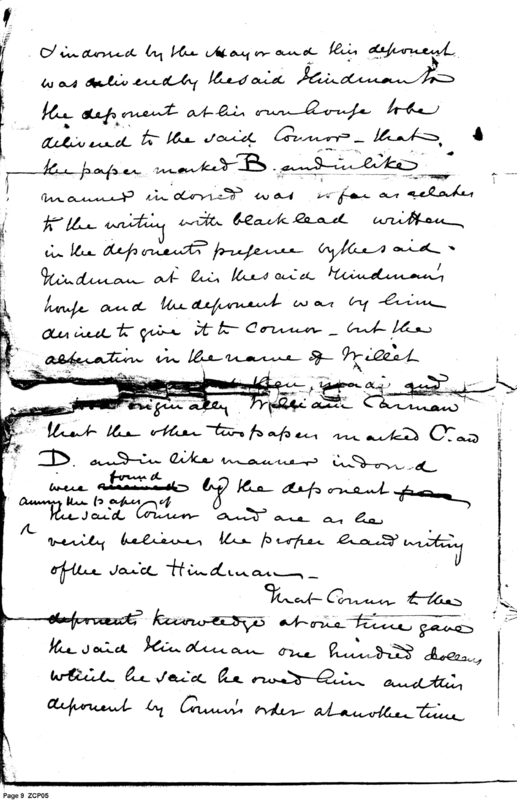 & indorsed by the Mayor and this deponent
was delivered by the said Hindman to
the deponent at his own house to be
delivered to the said Connor – that
the paper marked B. and in like
manner indorsed was so far as relates
to the writing with black lead written
in the deponents presence by the said
Hindman at his the said Hindman's
house and the deponent was by him
desired to give it to Connor – but the
alteration in the name of Willet
then made and
originally William Carman
that the other two papers marked C. and
D. and in like manner indorsed
were found by the deponent
among the papers of
the said Connor and are as he
verily believes the proper hand writing
of the said Hindman –
That Connor to the
deponents knowledge at one time gave
the said Hindman one hundred dollars
which he said he owed him and this
deponent by Connor's order at another time
Page 9 ZCP05